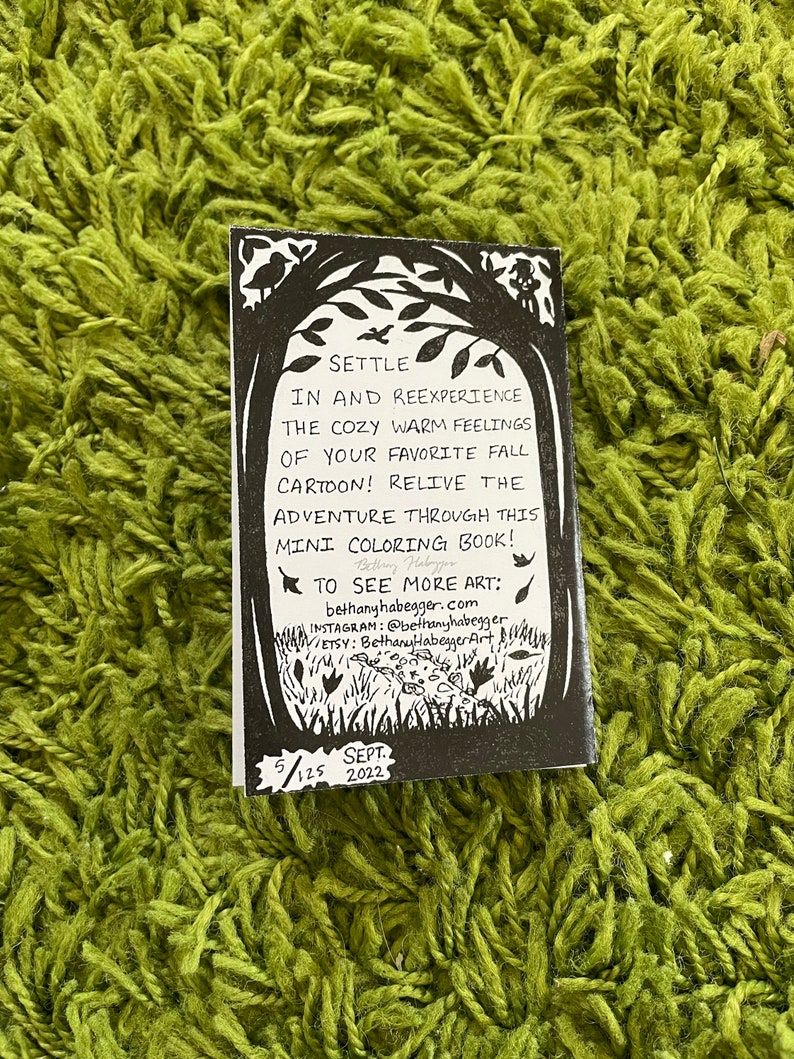 SETTLE
IN AND REEXPERIENCE
THE COZY WARM FEELINGS
OF YOUR FAVORITE FALL
CARTOON! RELIVE THE
ADVENTURE THROUGH THIS
MINI COLORING BOOK!
Bethany Habegger
TO SEE MORE ART:
bethanyhabegger.com
INSTAGRAM: @bethanyhabegger
ETSY: BethanyHabeggerArt
5/125 SEPT.
2022